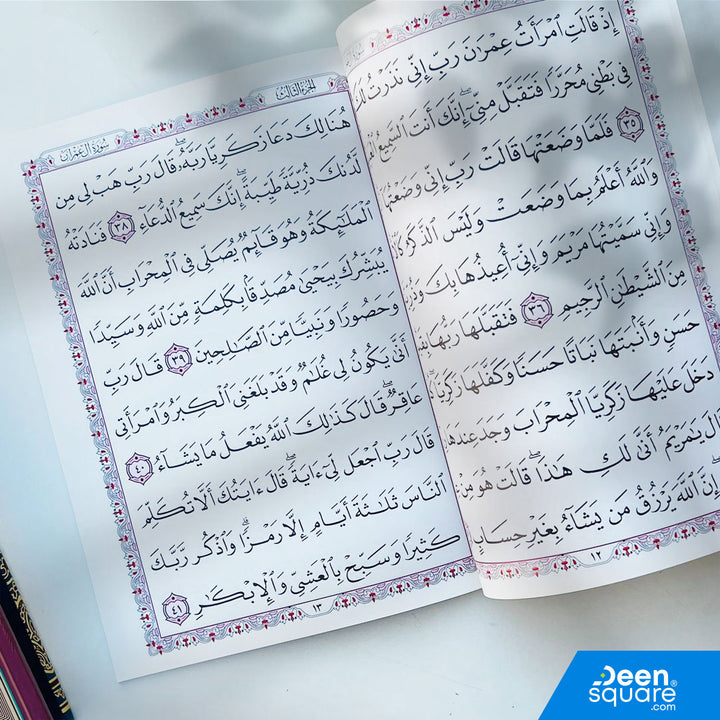 إِذْ قَالَتِ ٱمْرَأَتُ عِمْرَٰنَ رَبِّ إِنِّى نَذَرْتُ
فِى بَطْنِى مُحَرَّرًا فَتَقَبَّلْ مِنِّىٓ ۖ إِنَّكَ أَنتَ ٱلسَّمِيعُ
٣٥ فَلَمَّا وَضَعَتْهَا قَالَتْ رَبِّ إِنِّى وَضَعْتُهَآ
وَٱللَّهُ أَعْلَمُ بِمَا وَضَعَتْ وَلَيْسَ ٱلذَّكَرُ
وَإِنِّى سَمَّيْتُهَا مَرْيَمَ وَإِنِّىٓ أُعِيذُهَا بِكَ
مِنَ ٱلشَّيْطَٰنِ ٱلرَّجِيمِ ٣٦ فَتَقَبَّلَهَا رَبُّهَا
حَسَنٍ وَأَنۢبَتَهَا نَبَاتًا حَسَنًا وَكَفَّلَهَا زَكَرِيَّا
دَخَلَ عَلَيْهَا زَكَرِيَّا ٱلْمِحْرَابَ وَجَدَ عِندَهَا
يَٰمَرْيَمُ أَنَّىٰ لَكِ هَٰذَا ۖ قَالَتْ هُوَ مِنْ
إِنَّ ٱللَّهَ يَرْزُقُ مَن يَشَآءُ بِغَيْرِ حِسَابٍ
١٢
الجزء الثالث
سورة آل عمران
هُنَالِكَ دَعَا زَكَرِيَّا رَبَّهُۥ ۖ قَالَ رَبِّ هَبْ لِى مِن
لَّدُنكَ ذُرِّيَّةً طَيِّبَةً ۖ إِنَّكَ سَمِيعُ ٱلدُّعَآءِ ٣٨ فَنَادَتْهُ
ٱلْمَلَٰٓئِكَةُ وَهُوَ قَآئِمٌ يُصَلِّى فِى ٱلْمِحْرَابِ أَنَّ ٱللَّهَ
يُبَشِّرُكَ بِيَحْيَىٰ مُصَدِّقًۢا بِكَلِمَةٍ مِّنَ ٱللَّهِ وَسَيِّدًا
وَحَصُورًا وَنَبِيًّا مِّنَ ٱلصَّٰلِحِينَ ٣٩ قَالَ رَبِّ
أَنَّىٰ يَكُونُ لِى غُلَٰمٌ وَقَدْ بَلَغَنِىَ ٱلْكِبَرُ وَٱمْرَأَتِى
عَاقِرٌ ۖ قَالَ كَذَٰلِكَ ٱللَّهُ يَفْعَلُ مَا يَشَآءُ ٤٠
قَالَ رَبِّ ٱجْعَل لِّىٓ ءَايَةً ۖ قَالَ ءَايَتُكَ أَلَّا تُكَلِّمَ
ٱلنَّاسَ ثَلَٰثَةَ أَيَّامٍ إِلَّا رَمْزًا ۗ وَٱذْكُر رَّبَّكَ
كَثِيرًا وَسَبِّحْ بِٱلْعَشِىِّ وَٱلْإِبْكَٰرِ ٤١
١٣
Deen
square
.com